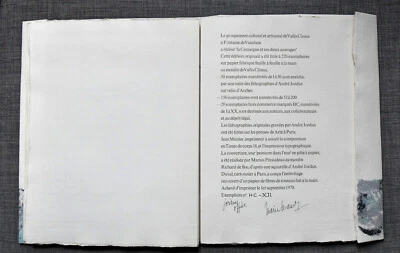 Le groupement culturel et artisanal de Vallis Clausa
à Fontaine de Vaucluse
a réalisé
Cette édition originale a été tirée à 220 exemplaires
sur papier fabriqué feuille à feuille à la main
au moulin de Vallis Clausa,
-50 exemplaires numérotés de 1 à 50 sont enrichis
par une suite des lithographies d'André Jordan
sur vélin d'Arches
-150 exemplaires sont numérotés de 51 à 200
-20 exemplaires hors commerce marqués HC, numérotés
de I à XX, sont destinés aux auteurs, aux collaborateurs
et au dépôt légal.
Les lithographies originales gravées par André Jordan
ont été tirées sur les presses de à Paris.
Jean imprimeur a assuré la composition
en Times de corps 16, et l'impression typographique.
La couverture,
a été réalisée par Marius
Richard de Bas, d'après une aquarelle d'André Jordan
Duval, à Paris, a conçu l'emboîtage
recouvert d'un papier de fibres de fait à la main.
Achevé d'imprimer le 1er septembre 1978.
Exemplaire n° H.C. - XII